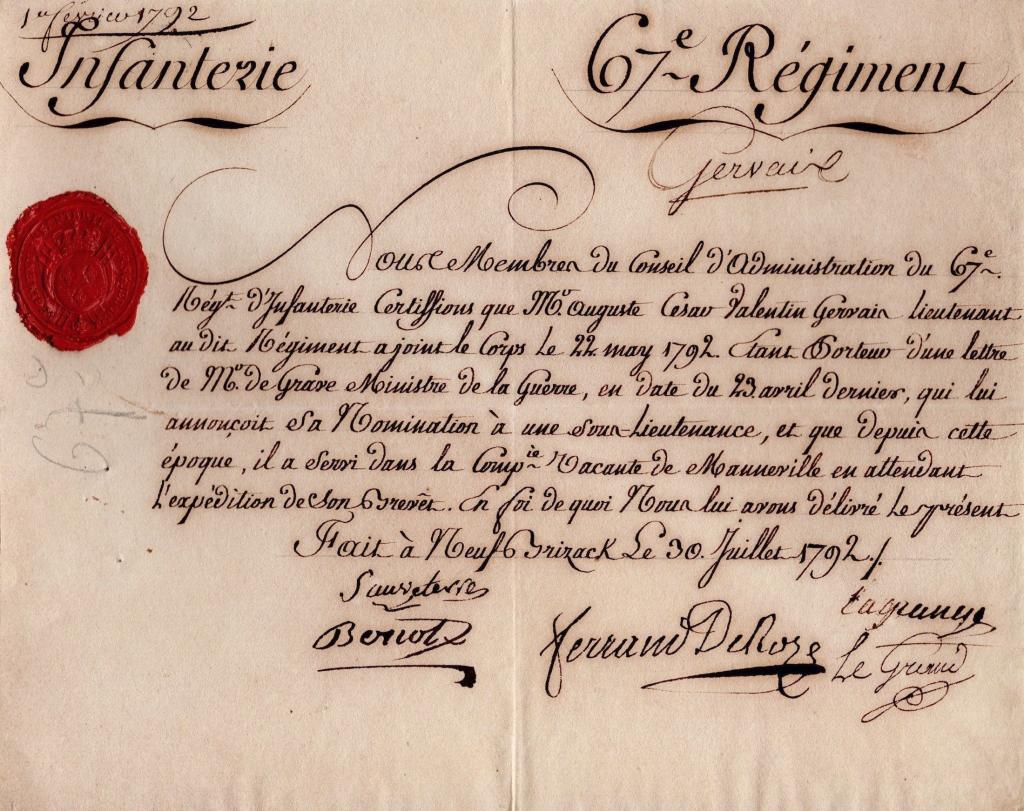 février 1792
Infanterie
67.e Régiment
Gervais
Nous Membres du Conseil d'Administration du 67.e
Régt. d'Infanterie Certiffions que Mr. Auguste Cesar Valentin Gervais lieutenant
au dit Régiment a joint le Corps Le 22 may 1792. Etant Porteur d'une lettre
de Mr. de Grave Ministre de la Guerre, en date du 23 avril dernier, qui lui
annonçoit Sa Nomination à une sous-Lieutenance, et que depuis cette
époque, il a Servi dans la Compie. Vacante de Manneville en attendant
L'expédition de Son Brevêt. En foi de quoi Nous lui avons délivré Le présent
Fait à Neuf Brizack Le 30. Juillet 1792./.
Sauveterre
Lagrange
Benot
Ferrand DeRoze
Le Grand
67e